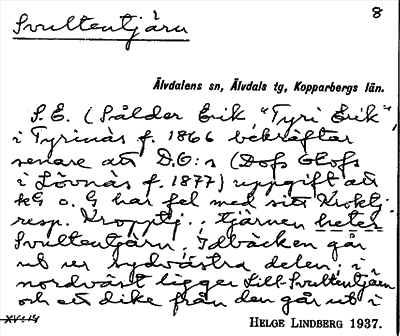 8
Svultentjärn
Älvdalens sn, Älvdals tg, Kopparbergs län.
S.E. (Sålder Erik, "Tyri Erik",
i Tyrinäs f. 1866 bekräftar
senare att D.O:s (Dofs Olofs
i Lövnäs f. 1877) uppgift att
KG o. G har fel med sitt Kroktj.
resp. Kropptj.. tjärnen heter
Svultentjärn. Idbäcken går
ut ur sydvästra delen; i
nordväst ligger Lill-Svultentjärn
och ett dike från den går ut i
HELGE LINDBERG 1937.